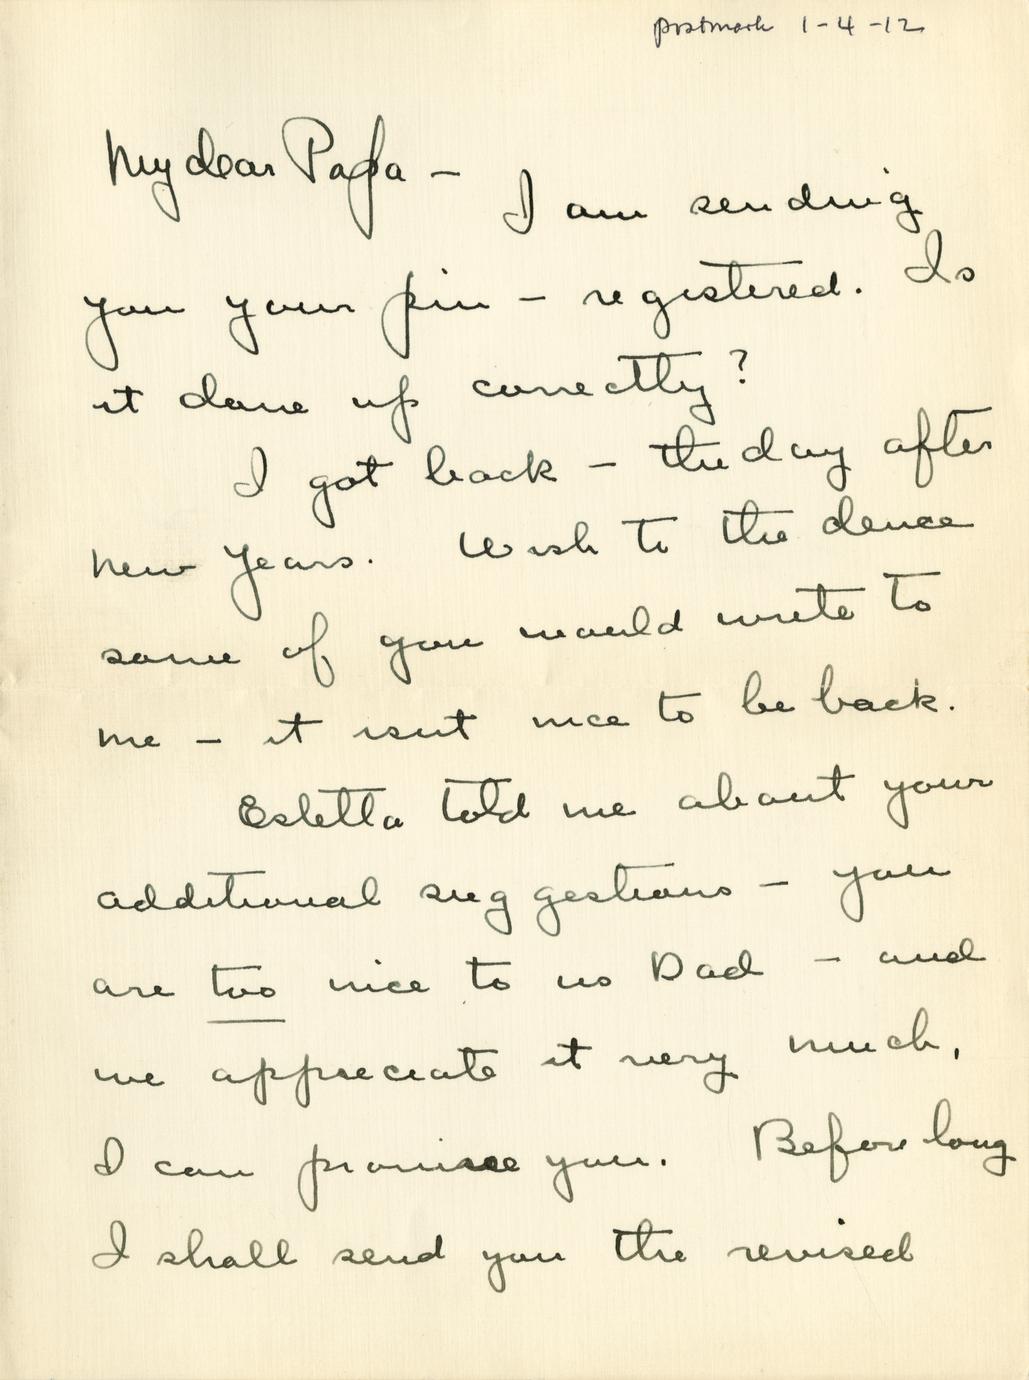 postmark 1-4-12
My dear Papa —
I am sending
you your pin — registered. Is
it done up correctly?
I got back — the day after
New Years. Wish to the deuce
some of you would write to
me — it isnt nice to be back.
Estetta told me about your
additional suggestions — you
are too nice to us Dad — and
we appreciate it very much,
I can promise you. Before long
I shall send you the revised